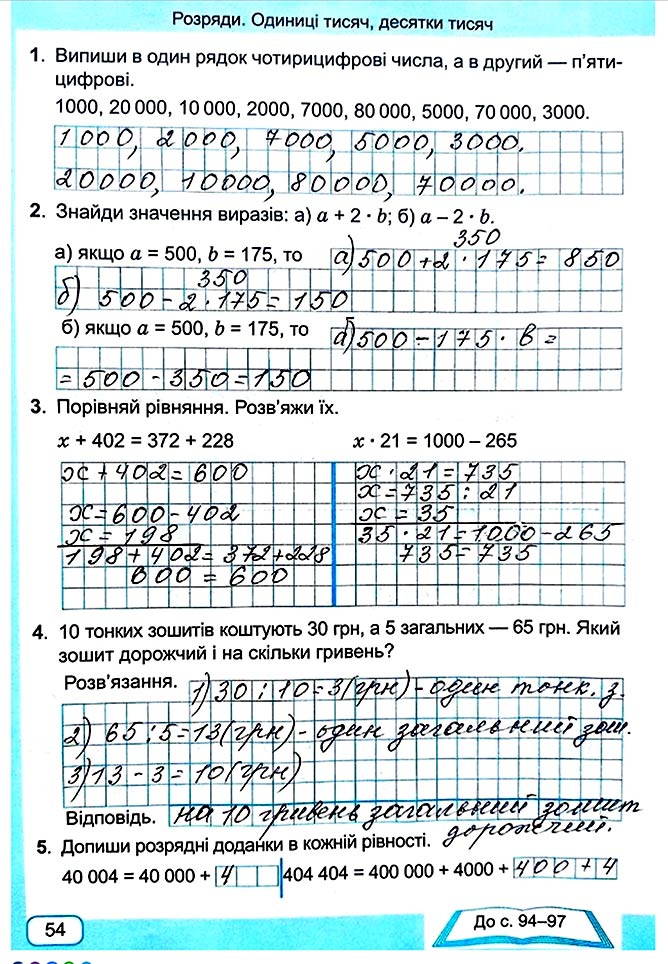 Розряди. Одиниці тисяч, десятки тисяч
1. Випиши в один рядок чотирицифрові числа, а в другий — п'яти-
цифрові.
1000, 20 000, 10 000, 2000, 7000, 80 000, 5000, 70 000, 3000.
1000, 2000, 7000, 5000, 3000.
20000, 10000, 80000, 70000.
2. Знайди значення виразів: а) a + 2 · b; б) a – 2 · b.
350
а) якщо a = 500, b = 175, то а) 500 + 2 · 175 = 850
350
б) 500 – 2 · 175 = 150
б) якщо a = 500, b = 175, то б) 500 – 175 · в =
= 500 – 350 = 150
3. Порівняй рівняння. Розв'яжи їх.
x + 402 = 372 + 228 x · 21 = 1000 – 265
x + 402 = 600 x · 21 = 735
x = 735 : 21
x = 600 – 402 x = 35
x = 198 35 · 21 = 1000 – 265
198 + 402 = 372 + 228 735 = 735
600 = 600
4. 10 тонких зошитів коштують 30 грн, а 5 загальних — 65 грн. Який
зошит дорожчий і на скільки гривень?
Розв'язання. 1) 30 : 10 = 3 (грн) – один тонк. з.
2) 65 : 5 = 13 (грн) – один загальний зош.
3) 13 – 3 = 10 (грн)
Відповідь. на 10 гривень загальний зошит
дорожчий.
5. Допиши розрядні доданки в кожній рівності.
40 004 = 40 000 + 4 404 404 = 400 000 + 4000 + 400 + 4
54
До с. 94–97